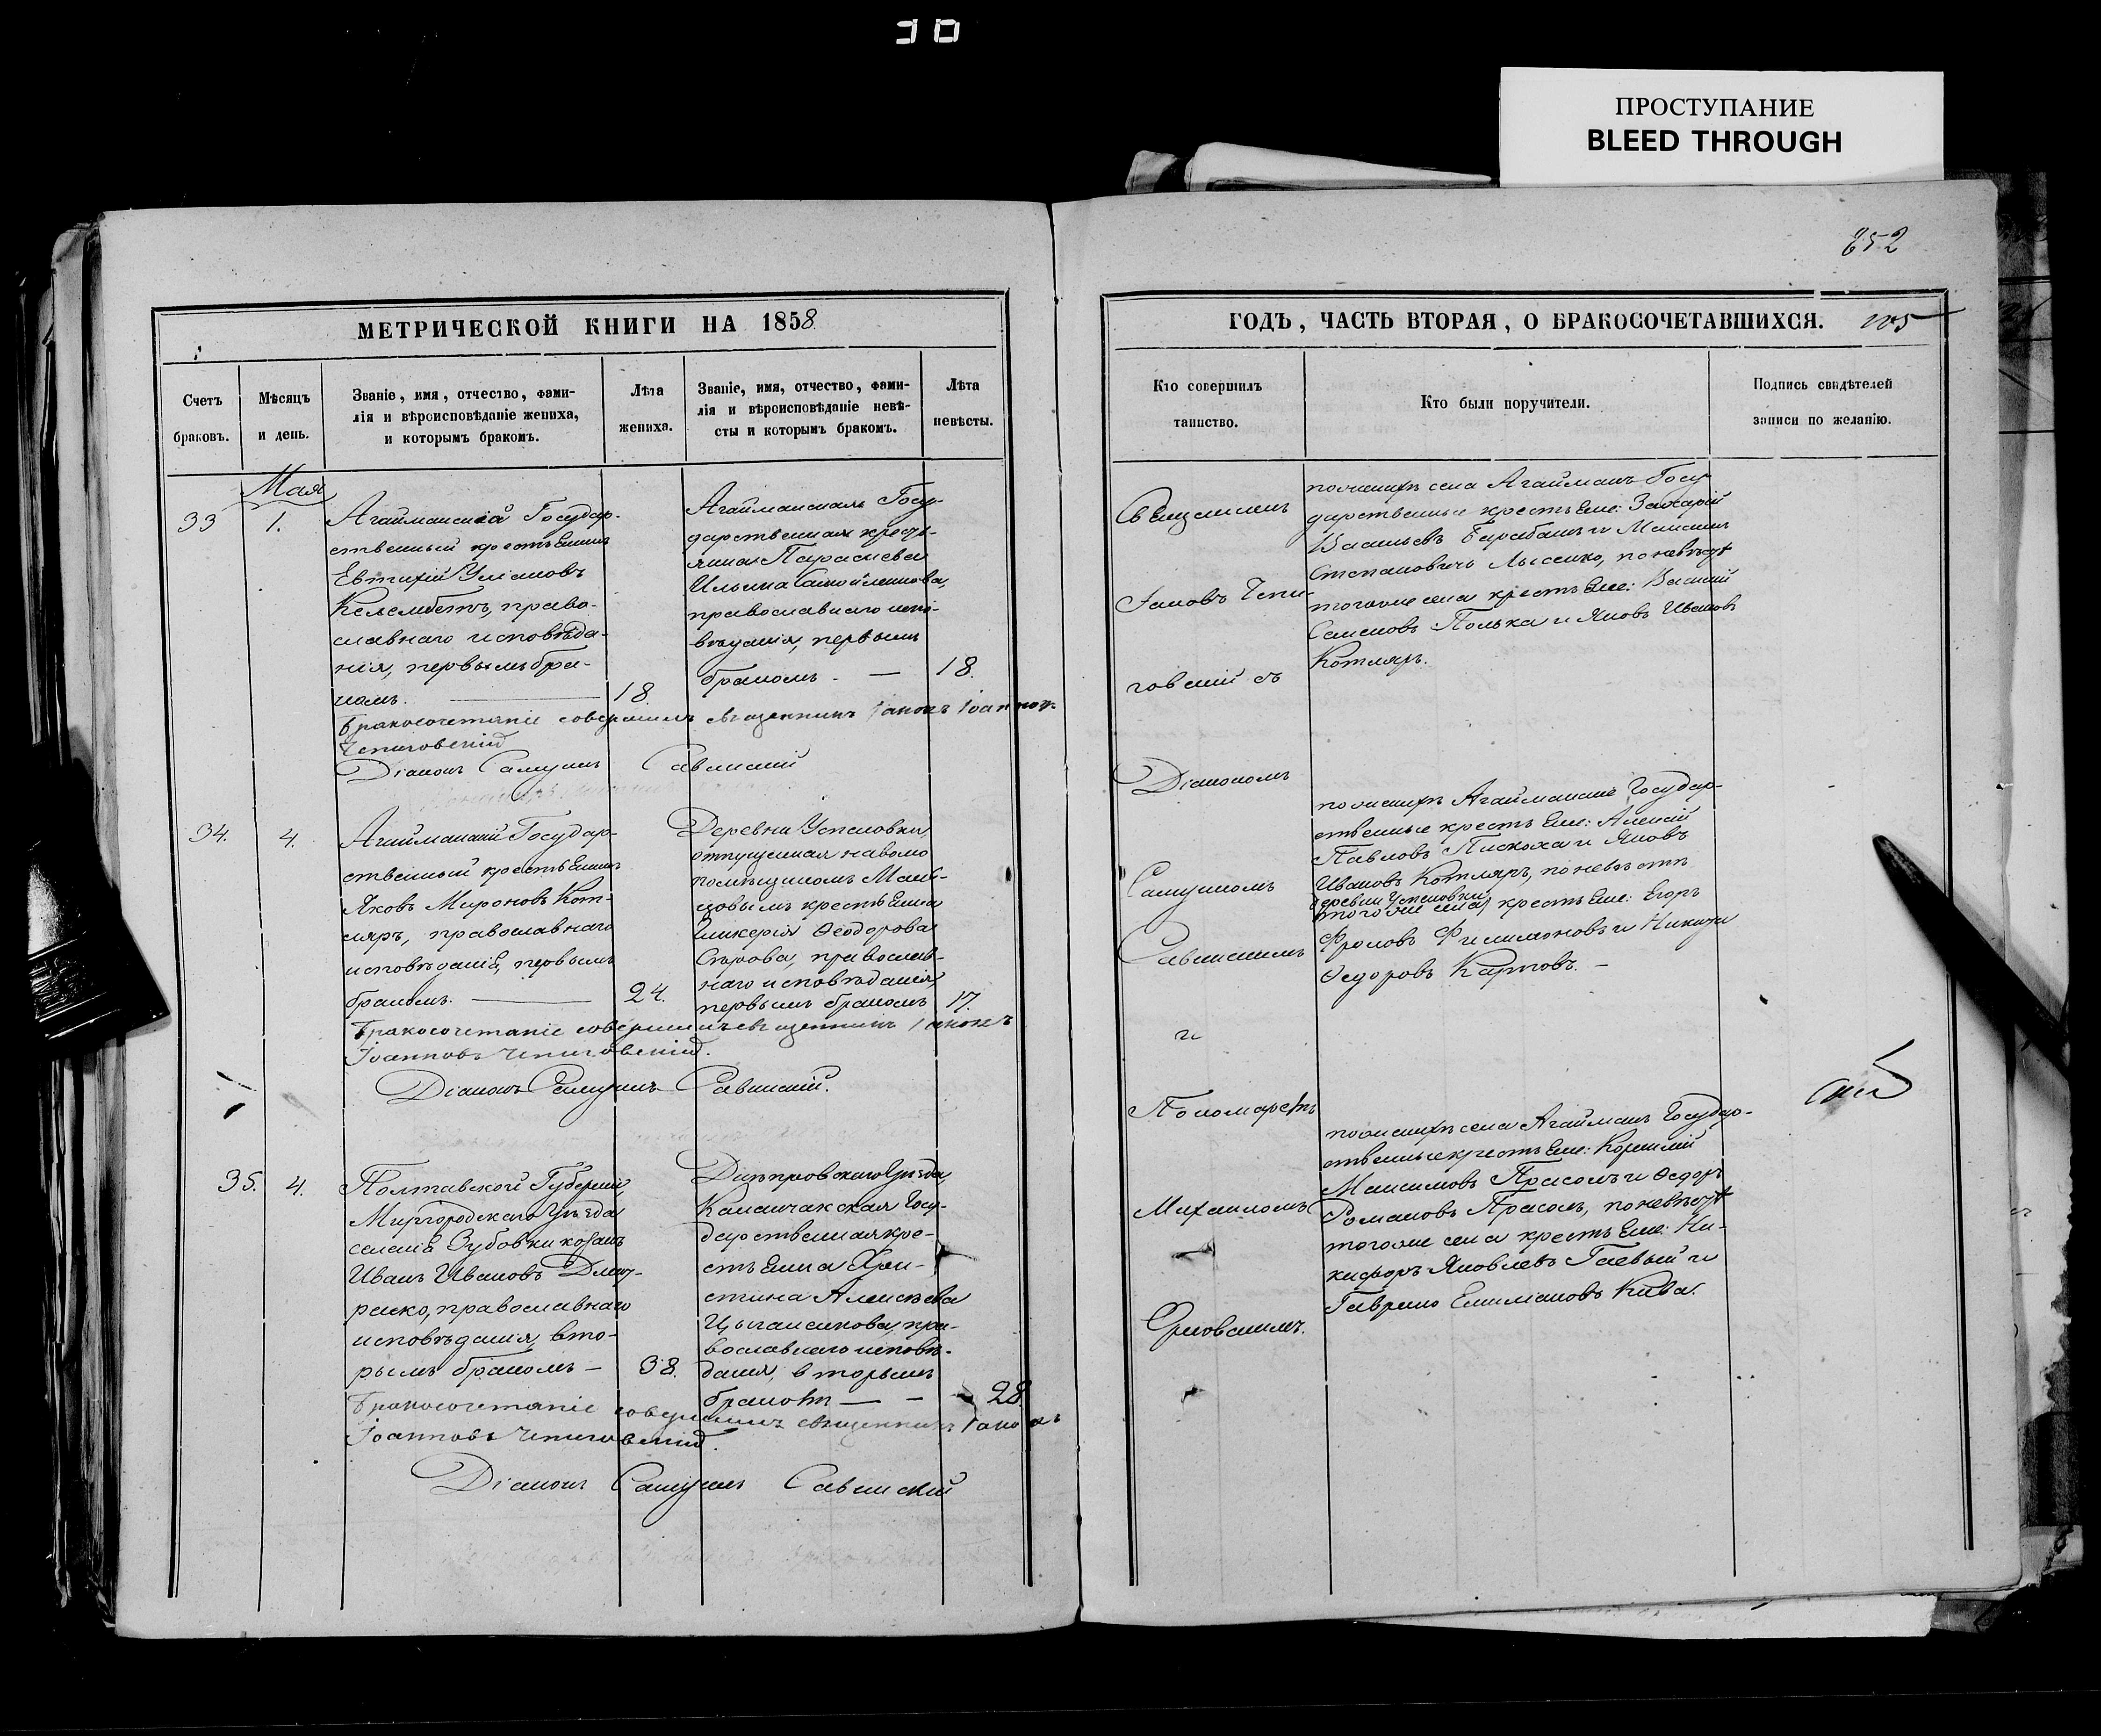 30
ПРОСТУПАНИЕ
BLEED THROUGH
252
МЕТРИЧЕСКОЙ КНИГИ НА 1858.
Счетъ браковъ.
Мѣсяцъ и день.
Званіе, имя, отчество, фами-
лія и вѣроисповѣданіе жениха,
и которымъ бракомъ.
Лѣта
жениха.
Званіе, имя, отчество, фами-
лія и вѣроисповѣданіе невѣ-
сты и которымъ бракомъ.
Лѣта
невѣсты.
Мая
33
1.
Агайманскій Государ-
ственный крестьянинъ
Евтихій
православ-
славнаго исповѣда-
нія, первымъ бра-
комъ. 18.
Агайманская Госу-
дарственная кресть-
янка Параскева
Ильина Самойленкова,
православнаго испо-
вѣданія, первымъ
бракомъ. — 18.
Бракосочетаніе совершилъ священникъ Іаковъ Іоанновъ
Чепиговскій
Діаконъ Самуилъ Савинскій
34.
4.
Агайманскій Государ-
ственный крестьянинъ
Яковъ Мироновъ Кот-
ляръ, православнаго
исповѣданія, первымъ
бракомъ. — 24.
Деревни Успеновки
отпущенная наволю
помѣщикомъ
крестьянка
Гликерія Ѳеодорова
православ-
наго исповѣданія,
первымъ бракомъ 17.
Бракосочетаніе совершилъ священникъ Іаковъ
Іоанновъ Чепиговскій.
Діаконъ Самуилъ Савинскій.
35.
4.
Полтавской Губерніи,
Миргородскаго Уѣзда
селенія Зубовки козакъ
Иванъ Ивановъ
православнаго
исповѣданія, вто-
рымъ бракомъ — 38.
Днѣпровскаго Уѣзда,
Каланчакская Госу-
дарственная кре-
стьянка Хри-
стина Алексѣева
Цыганенкова, пра-
вославнаго исповѣ-
данія, вторымъ
бракомъ — — 28
Бракосочетаніе совершилъ священникъ Іаковъ
Іоанновъ Чепиговскій.
Діаконъ Самуилъ Савинскій
ГОДЪ, ЧАСТЬ ВТОРАЯ, О БРАКОСОЧЕТАВШИХСЯ. 105
Кто совершилъ
таинство.
Кто были поручители.
Подпись свидѣтелей
записи по желанію.
Священникъ
Іаковъ Чепи-
говскій съ
Діакономъ
Самуиломъ
Савинскимъ
и
Пономаремъ
Михаиломъ
по женихѣ села Агайманъ Госу-
дарственные крестьяне: Захарій
Васильевъ Барабашъ и Максимъ
Степановичъ Лысенко, по невѣстѣ
тогоже села крестьяне: Василій
Семеновъ Полька и Яковъ Ивановъ
Котляръ.
по женихѣ Агайманскіе Государ-
ственные крестьяне: Алексій
Павловъ Пискоха и Яковъ
Ивановъ Котляръ, по невѣстѣ
деревни Успеновки
тогоже села крестьяне: Егоръ
Фроловъ Филимоновъ и Никита
Ѳедоровъ Карповъ. —
по женихѣ села Агайманъ Государ-
ственные крестьяне: Корнилій
Максимовъ Прасолъ и Ѳедоръ
Романовъ Прасолъ, по невѣстѣ
тогоже села крестьяне: Ни-
кифоръ Яковлевъ Гаевый и
Гаврило Емиліановъ Кива.